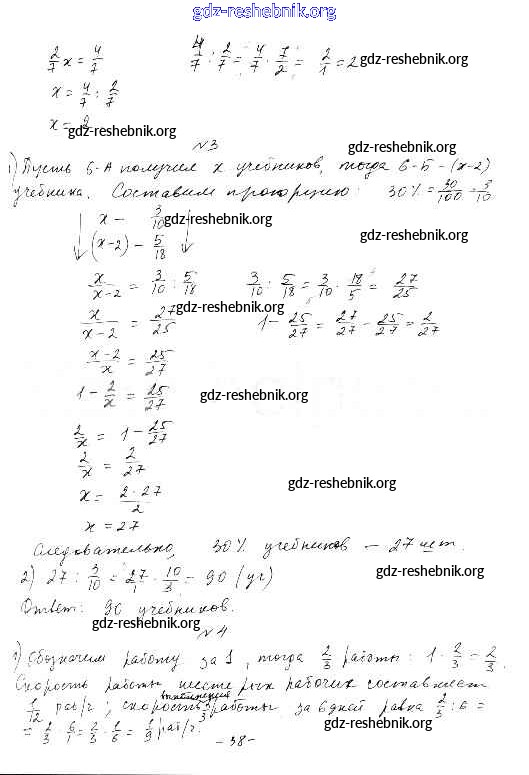 gdz-reshebnik.org
2/7 x = 4/7    4/7 : 2/7 = 4/7 · 7/2 = 2/1 = 2
gdz-reshebnik.org
x = 4/7 : 2/7
x = 2
gdz-reshebnik.org
№3
1) Пусть 6-А получил x учебников, тогда 6-Б - (x-2)
учебника. Составим пропорцию: 30% = 30/100 = 3/10
x — 3/10
gdz-reshebnik.org
(x-2) - 5/18
gdz-reshebnik.org
x/(x-2) = 3/10 : 5/18    3/10 : 5/18 = 3/10 · 18/5 = 27/25
gdz-reshebnik.org
x/(x-2) = 27/25    1 - 25/27 = 27/27 - 25/27 = 2/27
(x-2)/x = 25/27
1 - 2/x = 25/27
gdz-reshebnik.org
2/x = 1 - 25/27
2/x = 2/27
gdz-reshebnik.org
x = (2·27)/2
x = 27
Следовательно, 30% учебников — 27 шт.
2) 27 : 3/10 = 27/1 · 10/3 = 90 (уч)
gdz-reshebnik.org
Ответ: 90 учебников.
gdz-reshebnik.org
№4
1) Обозначим работу за 1, тогда 2/3 работы: 1 · 2/3 = 2/3.
Скорость работы шестерых рабочих составляет
1/12 раб/г; скорость выполнения 2/3 работы за 6 дней равна 2/3 : 6 =
= 2/3 : 6/1 = 2/3 · 1/6 = 1/9 раб/г.
gdz-reshebnik.org
- 38 -
gdz-reshebnik.org